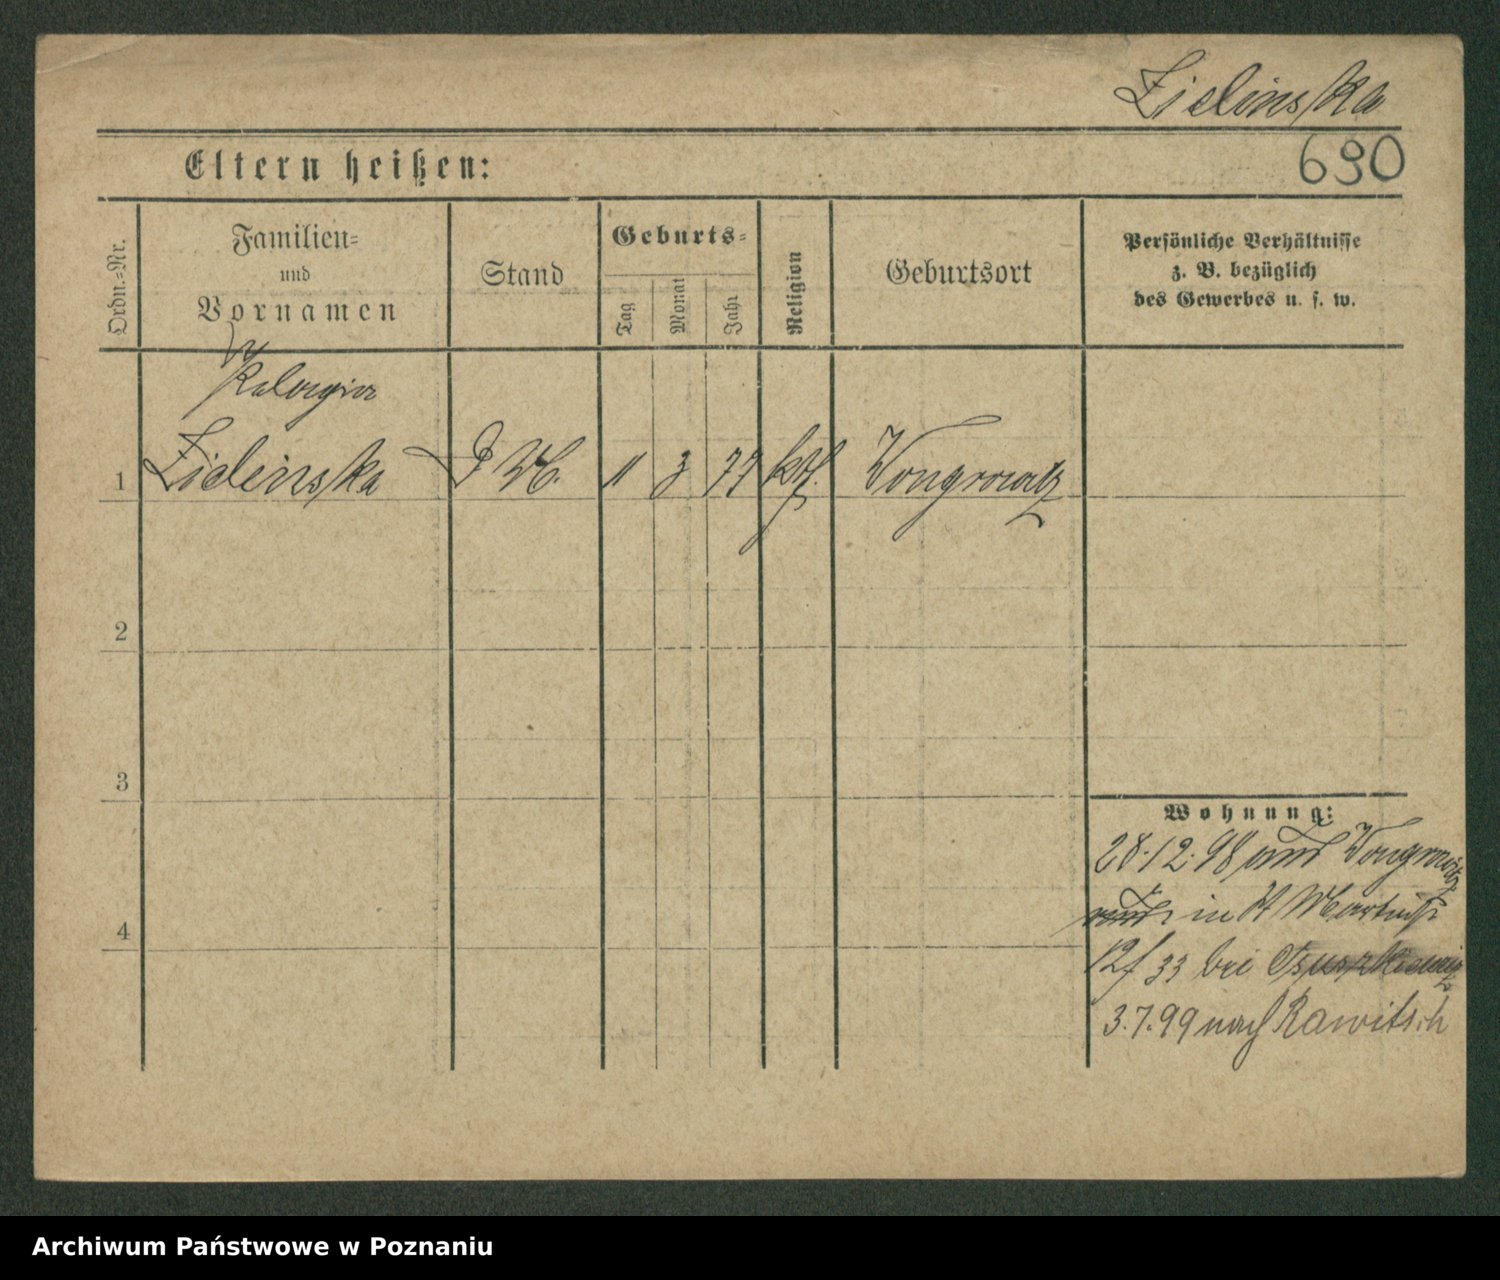 Zielinska
690
Eltern heißen:
Ordn.=Nr.
Familien=
und
Vornamen
Stand
Geburts=
Tag
Monat
Jahr
Religion
Geburtsort
Persönliche Verhältnisse
z. B. bezüglich
des Gewerbes u. s. w.
1
Zielinska
D M.
11
3
77
kth.
Wongrowitz
2
3
4
Wohnung:
28.12.98 aus Wongrowitz
in St Martinstr
12/33 bei
3.7.99 nach Rawitsch
Archiwum Państwowe w Poznaniu